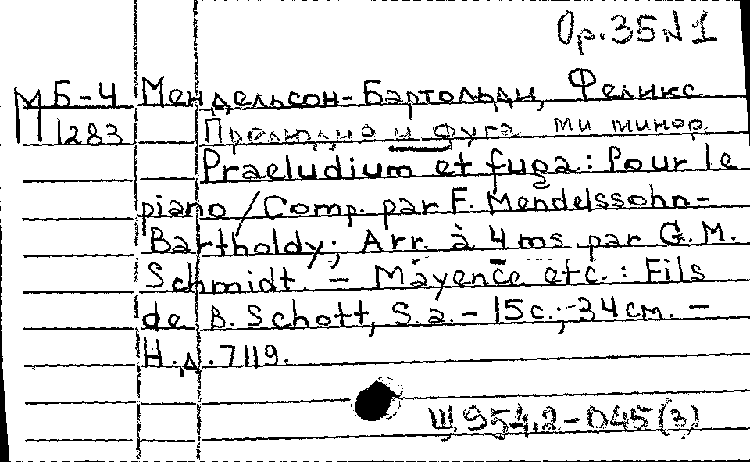 Op. 35 N 1
М Б-4 Мендельсон-Бартольди, Феликс
1283 Прелюдия и фуга ми минор
Praeludium et fuga: Pour le
piano / Comp. par F. Mendelssohn-
Bartholdy; Arr. à 4 ms par G. M.
Schmidt. - Mayence etc.: Fils
de B. Schott, S. a. - 15 с.; -34 см. -
Н.д. 7119.
Щ 954.2-045 (3)